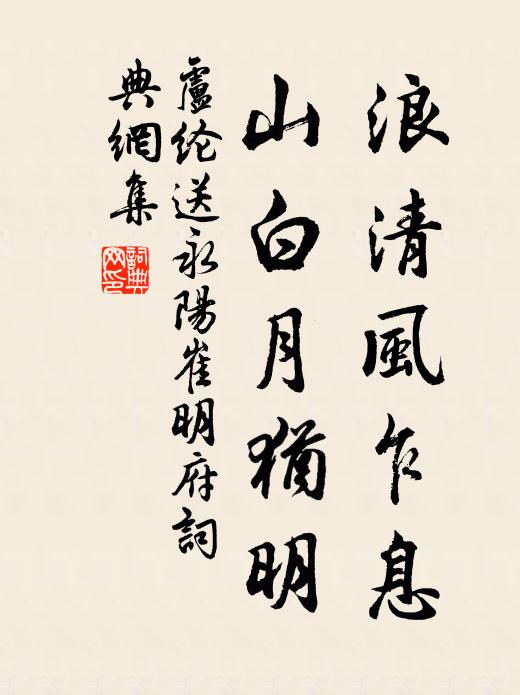 浪清風乍息
山白月猶明
盧纶送永陽崔明府詞
典網集
詞典
网印